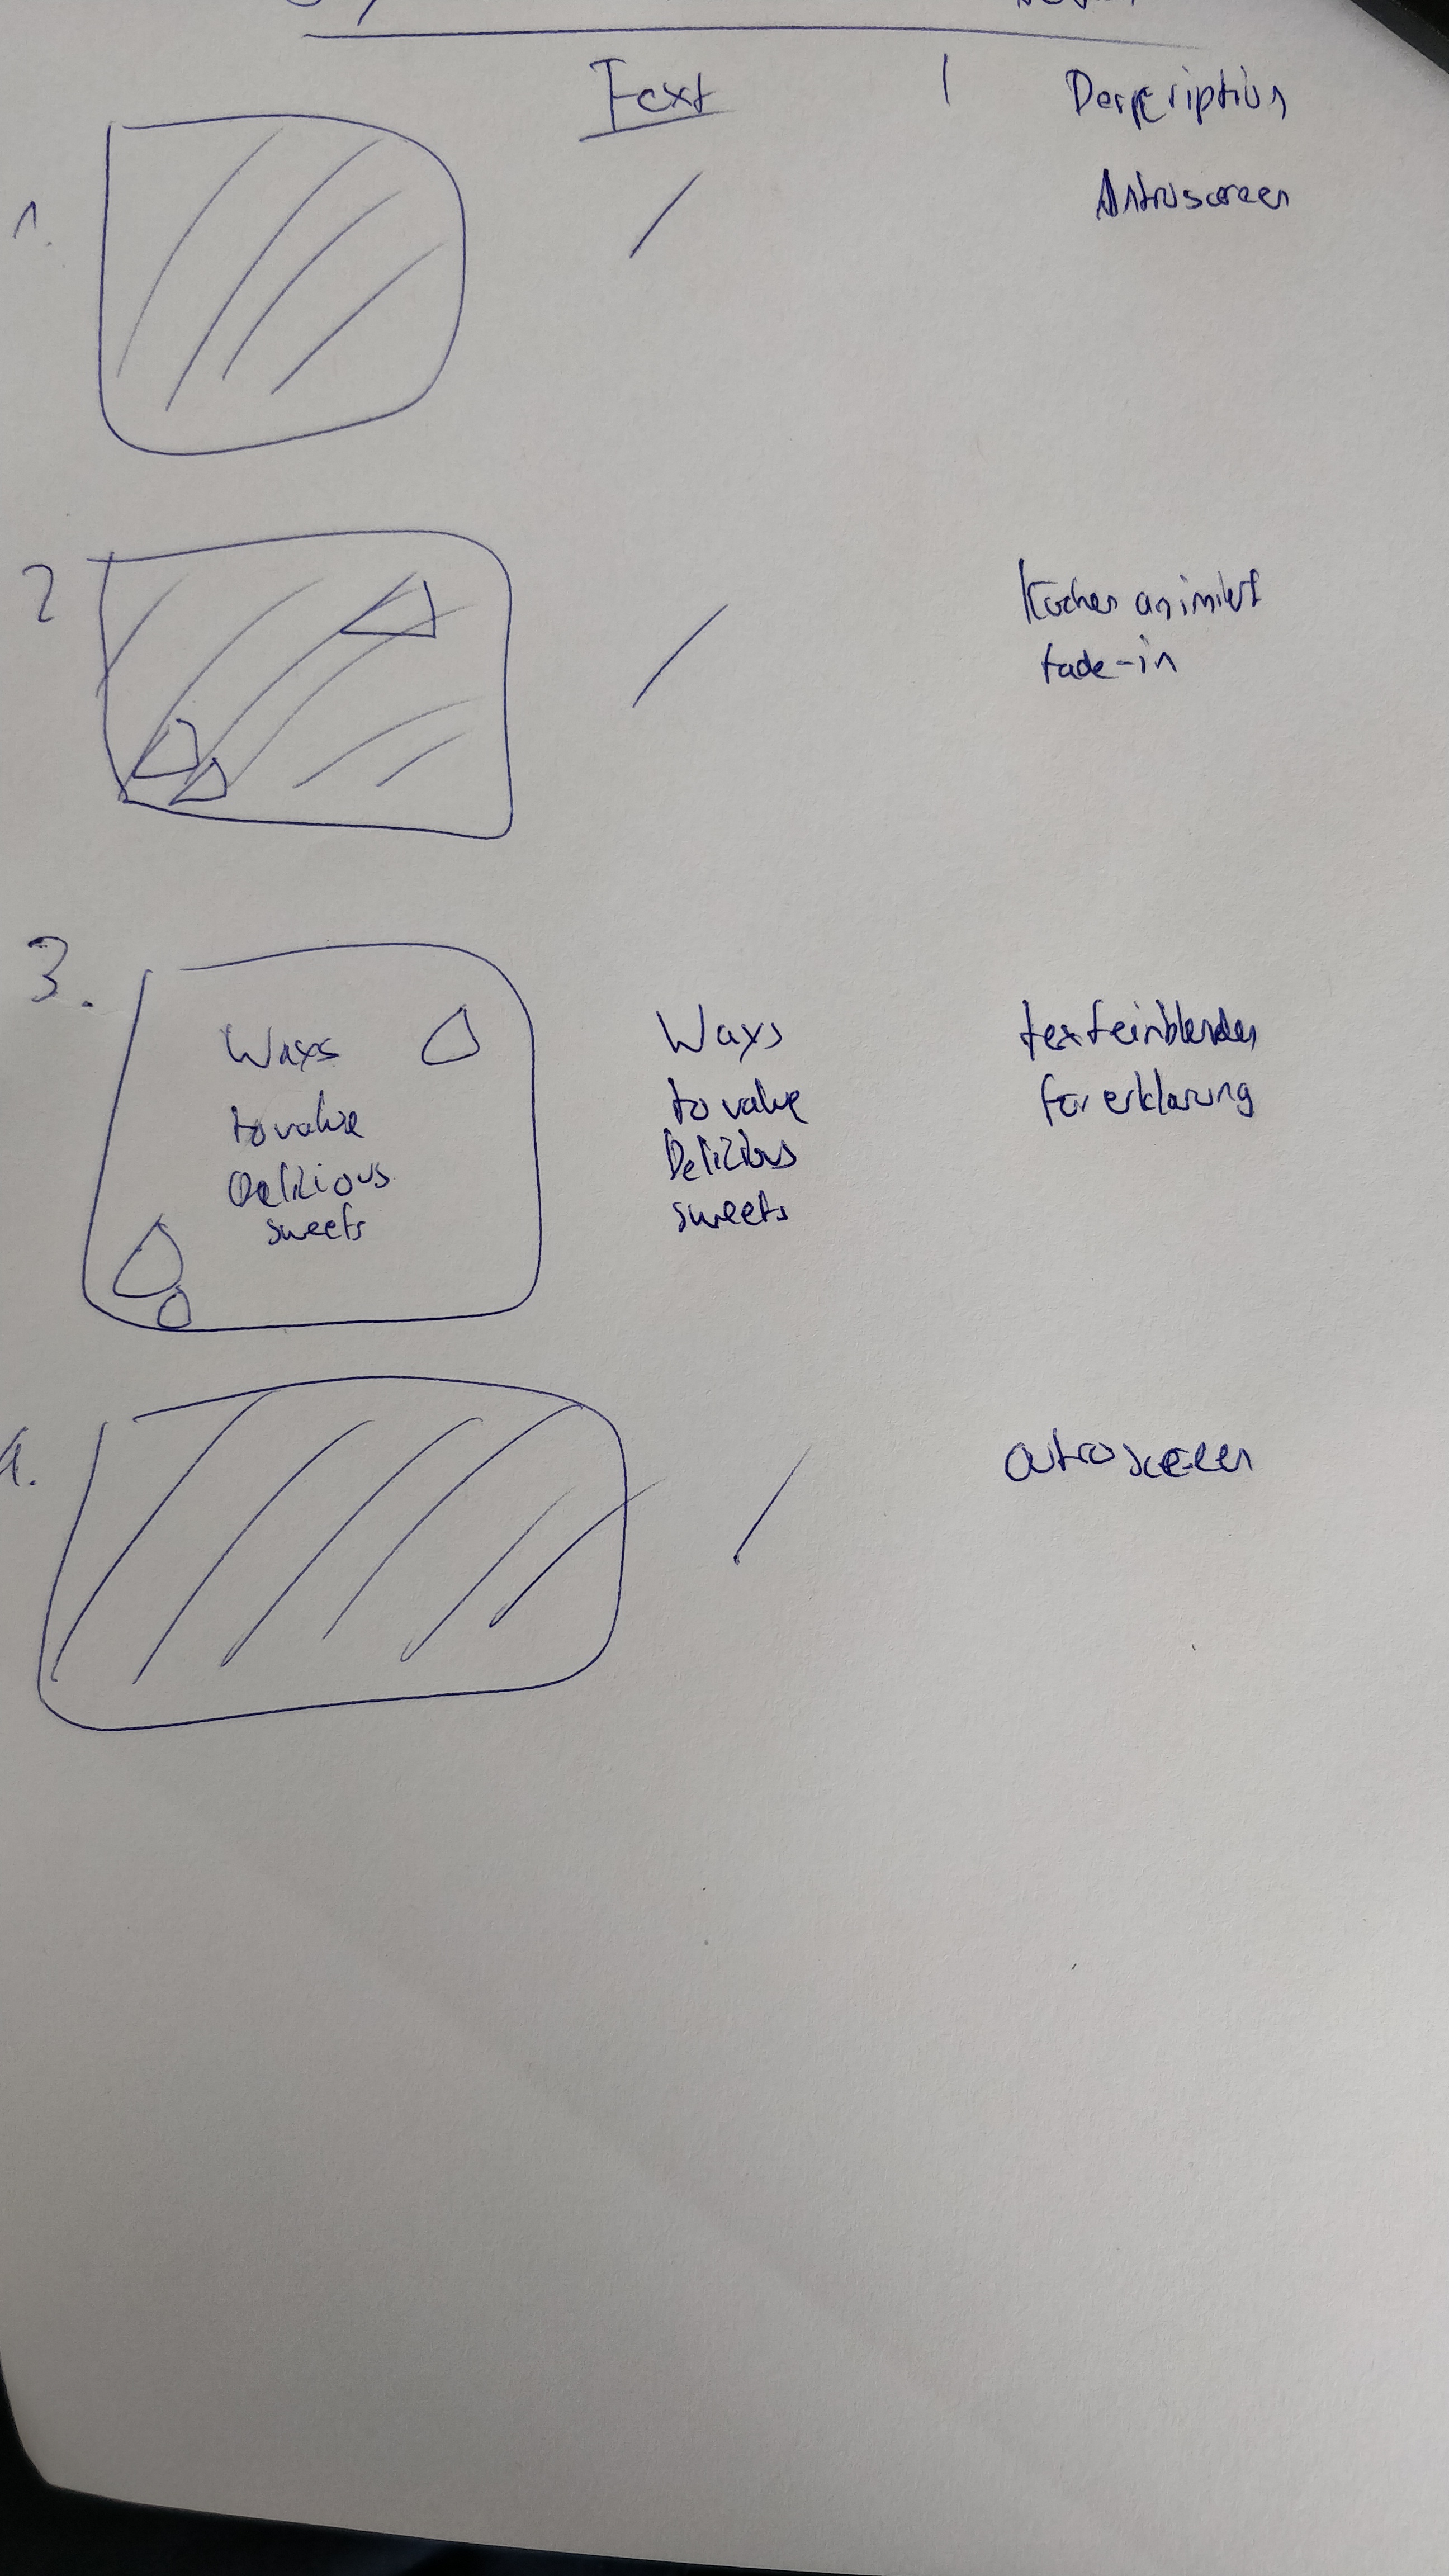 Text | Description
1. / Introscreen
2 / Kuchen animiert
fade-in
3. Ways
to value
Delizious
sweets
Ways
to value
Delizious
sweets
texteinblenden
für erklärung
4. / outroscreen